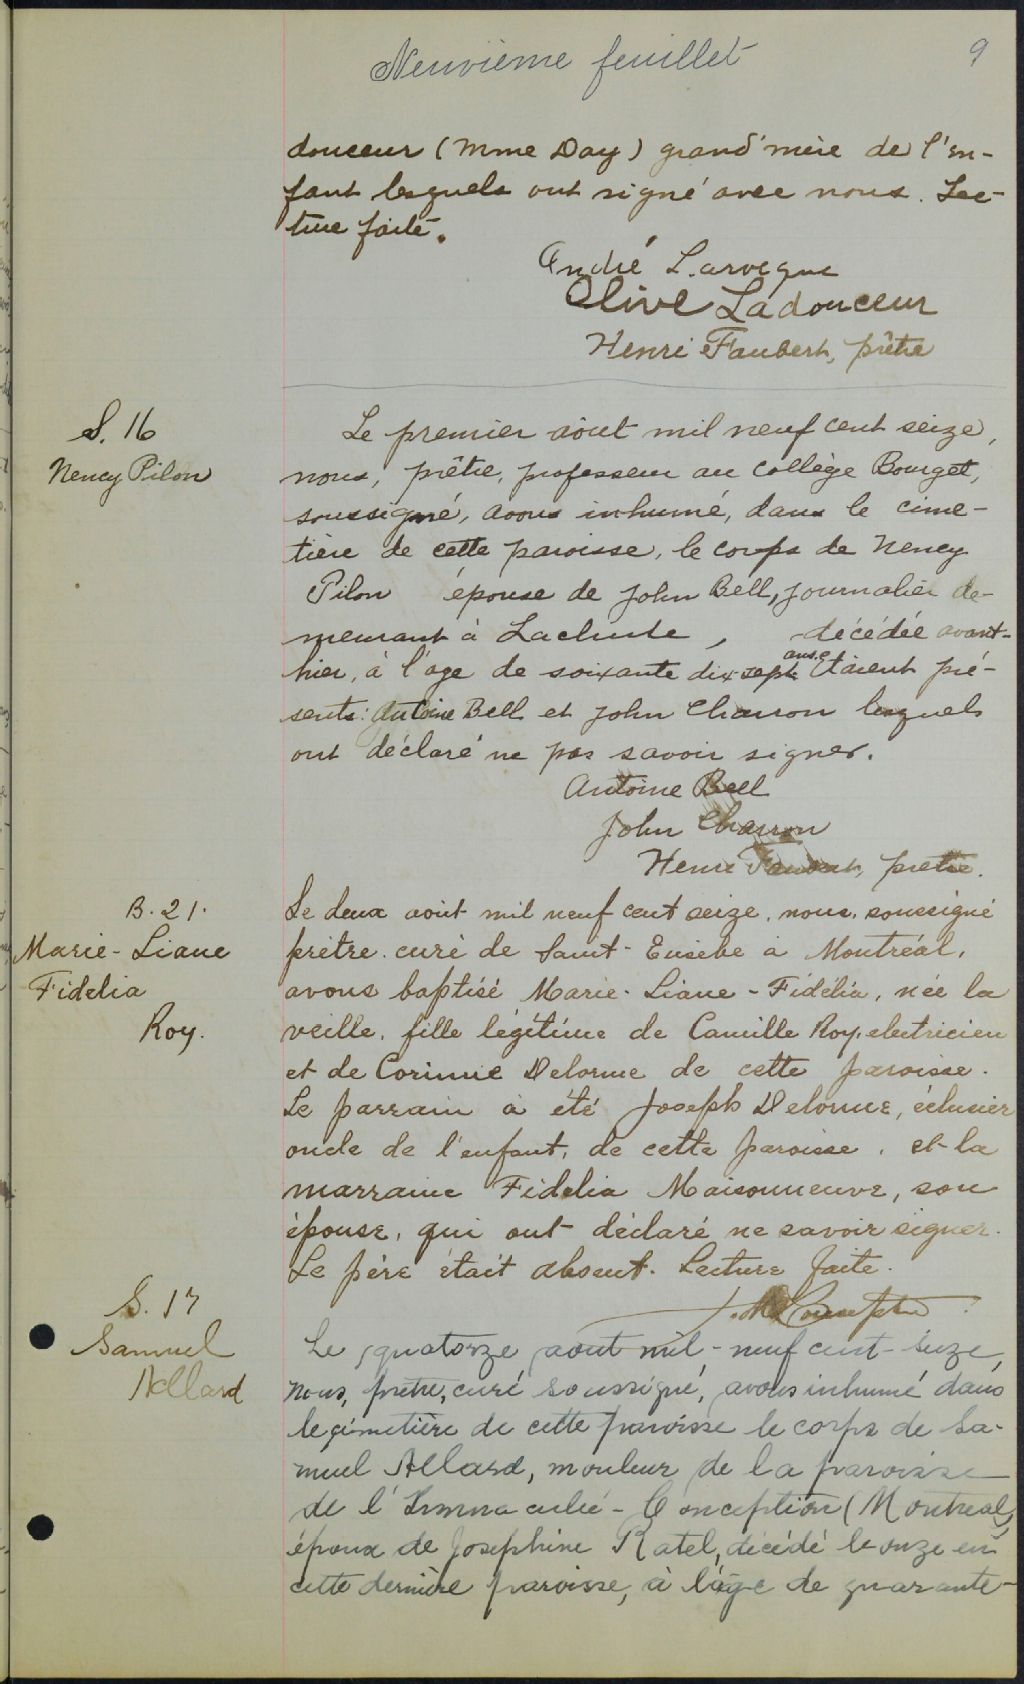 Neuvième feuillet
9
douceur (Mme Day) grand'mère de l'en-
fant lesquels ont signé avec nous. Lec-
ture faite.
André Larocque
Olive Ladouceur
Henri Faubert, prêtre
S. 16
Nency Pilon
Le premier août mil neuf cent seize,
nous, prêtre, professeur au collège Bourget,
soussigné, avons inhumé, dans le cime-
tière de cette paroisse, le corps de Nency
Pilon épouse de John Bell, journalier de-
meurant à Lachute, décédée avant-
hier, à l'âge de soixante dix-sept ans. Etaient pré-
sents: Antoine Bell et John Charron lesquels
ont déclaré ne pas savoir signer.
Antoine Bell
John Charron
Henri Faubert, prêtre.
B. 21.
Marie-Liane
Fidelia
Roy.
Le deux août mil neuf cent seize, nous, soussigné
prêtre curé de Saint-Eusèbe à Montréal,
avons baptisé Marie-Liane-Fidélia, née la
veille, fille légitime de Camille Roy, electricien
et de Corinne Delorme de cette paroisse.
Le parrain a été Joseph Delorme, éclusier
oncle de l'enfant, de cette paroisse, et la
marraine Fidelia Maisonneuve, son
épouse, qui ont déclaré ne savoir signer.
Le père était absent. Lecture faite.
S. 17
Samuel
Allard
Le quatorze aout mil-neuf cent-seize,
nous, prêtre, curé soussigné, avons inhumé dans
le cimetière de cette paroisse le corps de Sa-
muel Allard, mouleur de la paroisse
de l'Immaculée-Conception (Montreal)
époux de Josephine Ratel, décédé le onze en
cette dernière paroisse, à l'âge de quarante-